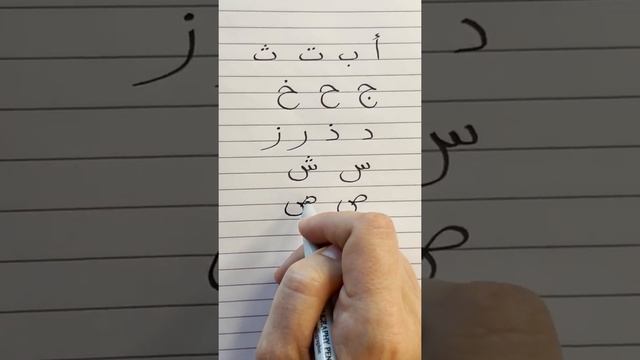 أ ب ت ث
ج ح خ
د ذ ر ز
س ش
ص ض
GRAPHY PEN